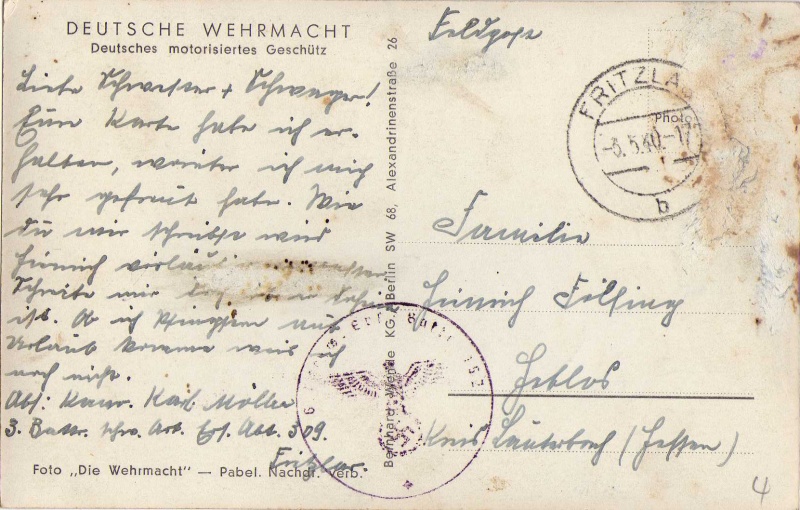 DEUTSCHE WEHRMACHT
Deutsches motorisiertes Geschütz
Liebe Schwester + Schwager!
Eure Karte habe ich er-
halten, worüber ich mich
sehr gefreut habe. Wie
du mir schreibst wird
Heinrich
Schreibe mir
ist. Ob ich Pfingsten auf
Urlaub komme weis ich
noch nicht.
Abs: Kanr. Karl Möller
3. Battr. schw. Art. Ers. Abt. 309.
Fritzlar.
Foto „Die Wehrmacht" — Pabel. Nachgr. verb.
Bernhard Wende KG., Berlin SW 68, Alexandrinenstraße 26
Feldpost
FRITZLA
-6.5.40.-17
b
Photo
Familie
Heinrich Fölsing
Heblos
Kreis Lauterbach (Hessen)
4